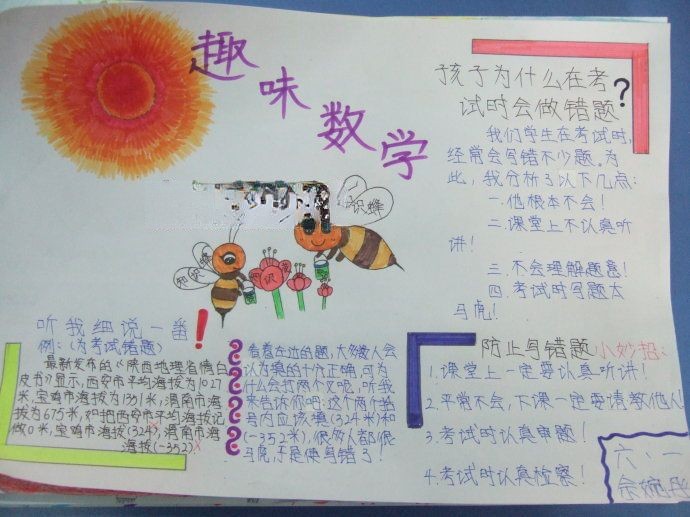 趣味数学
孩子为什么在考
试时会做错题?
我们学生在考试时,
经常会写错不少题。为
此,我分析了以下几点:
一.他根本不会!
二.课堂上不认真听
讲!
三.不会理解题意!
四.考试时写题太
马虎!
识蜂
知识蜂
知识
听我细说一番!
例:(为考试错题)
最新发布的《陕西地理省情白
皮书》显示,西安市平均海拔为1027
米,宝鸡市海拔为1351米,渭南市海
拔为675米,如把西安市平均海拔记
做0米,宝鸡市海拔(324),渭南市海
海拔(-352)
看着左边的题,大多数人会
认为填的十优正确,可为
什么会打两个叉呢,听我
来告诉你吧:这个两个括
号内应该填(324米)和
(-352米),很多人都很
马虎,不是便写错了!
防止写错题小妙招:
1.课堂上一定要认真听讲!
2.平常不会,下课一定要请教他人
3.考试时认真审题!
4.考试时认真检察!
六、一
余婉